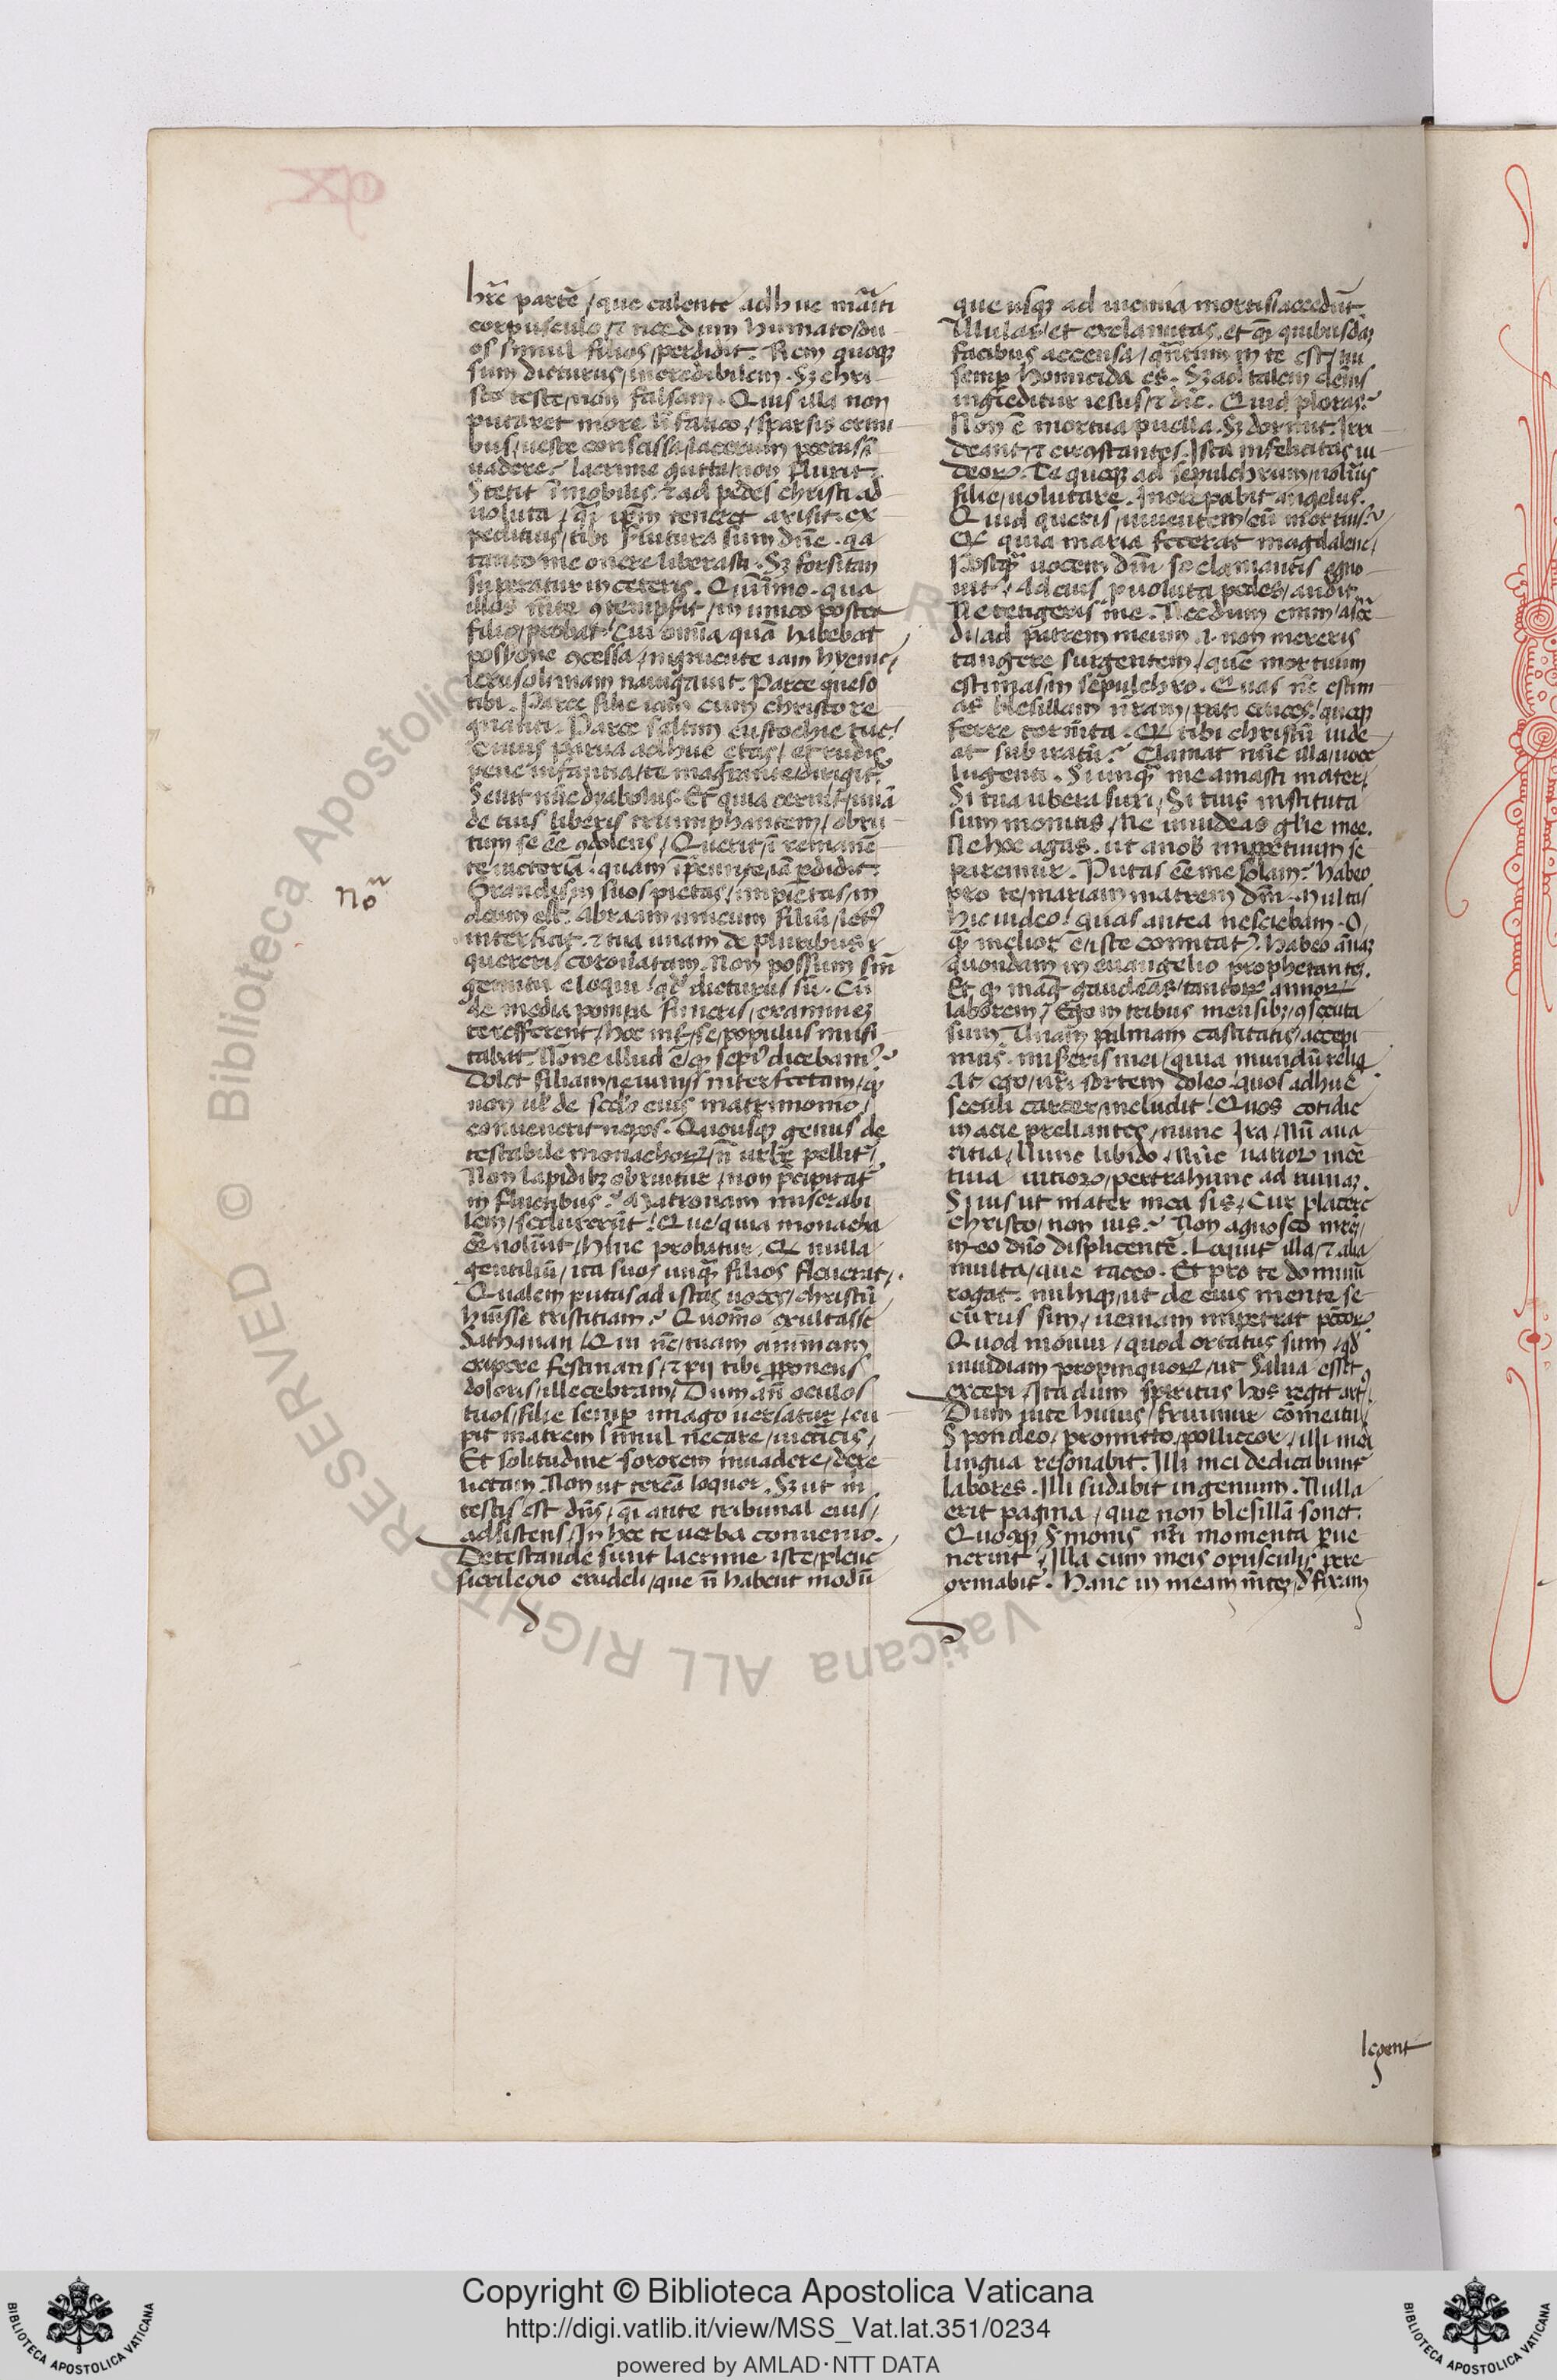 hr̄e partē / que calente adhuc mar̄iti
corpusculo / ⁊ necdum humato / du
os simul filios / perdidit. Rem quoqꝫ
sum dicturus / incredibilem. Sꝫ chri
sto teste / non falsam. Quis illa non
putaret more
bus / ueste conscissa / lacerum pectus ī
uadere? lacrime gutta / non fluxit.
Stetit īmobilis. ⁊ ad pedes christi ad
uoluta / qͣ ip̄m teneret arisit. ex
peditius / tibi seruitura sum dn̄e. qͥa
tanto me onere liberasti. Sꝫ forsitan
superatur in ceteris. Quinīmo. qua
illos mēte ꝯtempsit / in unico postea
filio / probat! Cui omīa quā habebat
possione ꝯcessa / ingruente iam hyeme /
ierusolimam nauigauit. Parce queso
tibi. Parce filie iam cum christo re
gnanti. Parce saltim eustochie tue!
Cuius parua adhuc etas / et rudis
pene infantia / te magistrante / dirigit̄.
Seuit nūc dyabolus. Et quia cernit / unā
de tuis liberis triumphantem / obru
tum se eē ꝯdolens / Querit / ī remanē
te uictoriā. quam ī p̄eunte / iā ꝑdidit.
Grandis in suos pietas / impietas / in
deum est. Abraam unicum filiū / letꝰ
interficit. ⁊ tua unam de pluribus
quereris / coronatam. Non possum sin̄
gemitu eloqui / qd̓ dicturus sū. Cū
de media pompa funeris / exanimeꝫ
te refferent / hec int̓ se / populus musi
tabat. Nōne illud ē / qꝫ sepiꝰ dicebam?
Dolet filiam / ieiuniis interfectam / qꝫ
non ul̓ de sc̄do eius matrimonio /
conuenerit nepos. Quousqꝫ genus de
testabile monachoꝝ / n̄ urbe pellit̄ /
Non lapidibꝫ obruitur / non p̄cipitat̄
in fluctibus? Matronam miserabi
lem / seduxerūt! Que / quia monacha
eē noluīt / hinc probatur. Qꝫ nulla
gentiliū / ita suos unqͣ filios fleuerat /
Qualem putas ad istas uoces / christū
huisse tristitiam? Quomo exultasse
Sathanan / Qui nc̄ / tuam animam
eripere festinans / ⁊ pii tibi ꝓponens
doloris / illecebram / Dum an̄ oculos
tuos / filie semꝑ imago uersatur / cu
pit matrem simul necare / uictricis /
Et solitudine sororem inuadere / dere
lictam. Non ut terreā loquor. Sꝫ ut m
testis est dn̄s / qͥ ante tribunal eius /
adsistens / In hec te uerba conuenio.
Detestande sunt lacrime iste / plene
sacrilegio crudeli / que n̄ habent modū
que usqꝫ ad uicinia mortis / accedūt.
Ululas / et exclamitas. et qͣ quibusdaꝫ
facibus accensa / qn̄tum in te est / tui
semꝑ homicida es. Sꝫ ad talem clemēs
ingreditur iesus / ⁊ dic̄. Quid ploras?
Non ē mortua puella. Sꝫ dormit. Irri
deant / ⁊ circūstantes. Ista infelicitas iu
deoꝝ. Te quoqꝫ ad sepulchrum / uolūs
filie / uolutare. Increpabit angelus.
Quid queris / uiuentem / cū mortuis?
Qꝫ quia maria fecerat magdalene /
Postqͣ uocem dn̄i se clamantis agno
uit / Ad eius ꝓuoluta pedes / audit.
Ne tengeris me. Necdum enim / ascē
di / ad patrem meum .i. non mereris
tangere surgentem / quē mortuum
estimas in sepulchro. Quas nc̄ estim
as blesillam n̄ram / pati cruces! queqꝫ
ferre torm̄ta. Qꝫ tibi christū uide
at sub iratū? Clamat nūc illa / uoce
lugenti. Si unqͣ me amasti mater /
Si tua ubera suxi / Si tuis instituta
sum monitis / Ne inuideas gl̄ie mee.
Ne hoc agas. ut anob̓ inppetuum se
paremur. Putas eē me solam? habeo
pro te / mariam matrem dn̄i. Multas
hic uideo! quas antea nesciebam. O /
qͣ melior ē / iste comitatꝰ. habeo annaꝫ
quondam in euangelio prophetantes.
Et qͦ magͥ gaudeas / tantoꝝ annoꝝ
laborem / Ego in tribus mensibꝫ / ꝯsecuta
sum. Unam palmam castitatis / accepi
mus. miseris mei / quia mundū reliq
At ego / uri sortem doleo! quos adhuc
seculi carcer / includit! Quos cotidie
in acie preliantes / nunc Ira / Nū aua
ritia / Nunc libido / Nūc uarioꝝ incē
tiua uitioꝝ / pertrahunt ad ruinaꝫ.
Si uis ut mater mea sis / Cur placere
christo / non uis? Non agnosco mrēs /
m eo dn̄o displicentē. Loquit̄ illa / ⁊ alia
multa / que taceo. Et pro te dominū
rogat. mihiqꝫ / ut de eius mente se
curus sim / ueniam impetrat pctoꝝ
Quod monui / quod ortatus sum / qd̓
inuidiam propinquoꝝ / ut salua esset
excepi / Ita dum spiritus hos regit artꝰ /
Dum uite huius / fruimur cōmeatu /
Spondeo / promitto / polliceor / illi mea
lingua resonabit. Illi mei dedicabunt̄
labores. Illi sudabit ingenium. Nulla
erit pagina / que non blesillā sonet.
Quoqͦ sermonis n̄ri momenta ꝑue
nerint / Illa cum meis opusculis pere
grinabit̄. Hanc in meam mētē / d̓fixam
Noͣ
legent
Copyright © Biblioteca Apostolica Vaticana
http://digi.vatlib.it/view/MSS_Vat.lat.351/0234
powered by AMLAD·NTT DATA
BIBLIOTECA APOSTOLICA VATICANA
BIBLIOTECA APOSTOLICA VATICANA